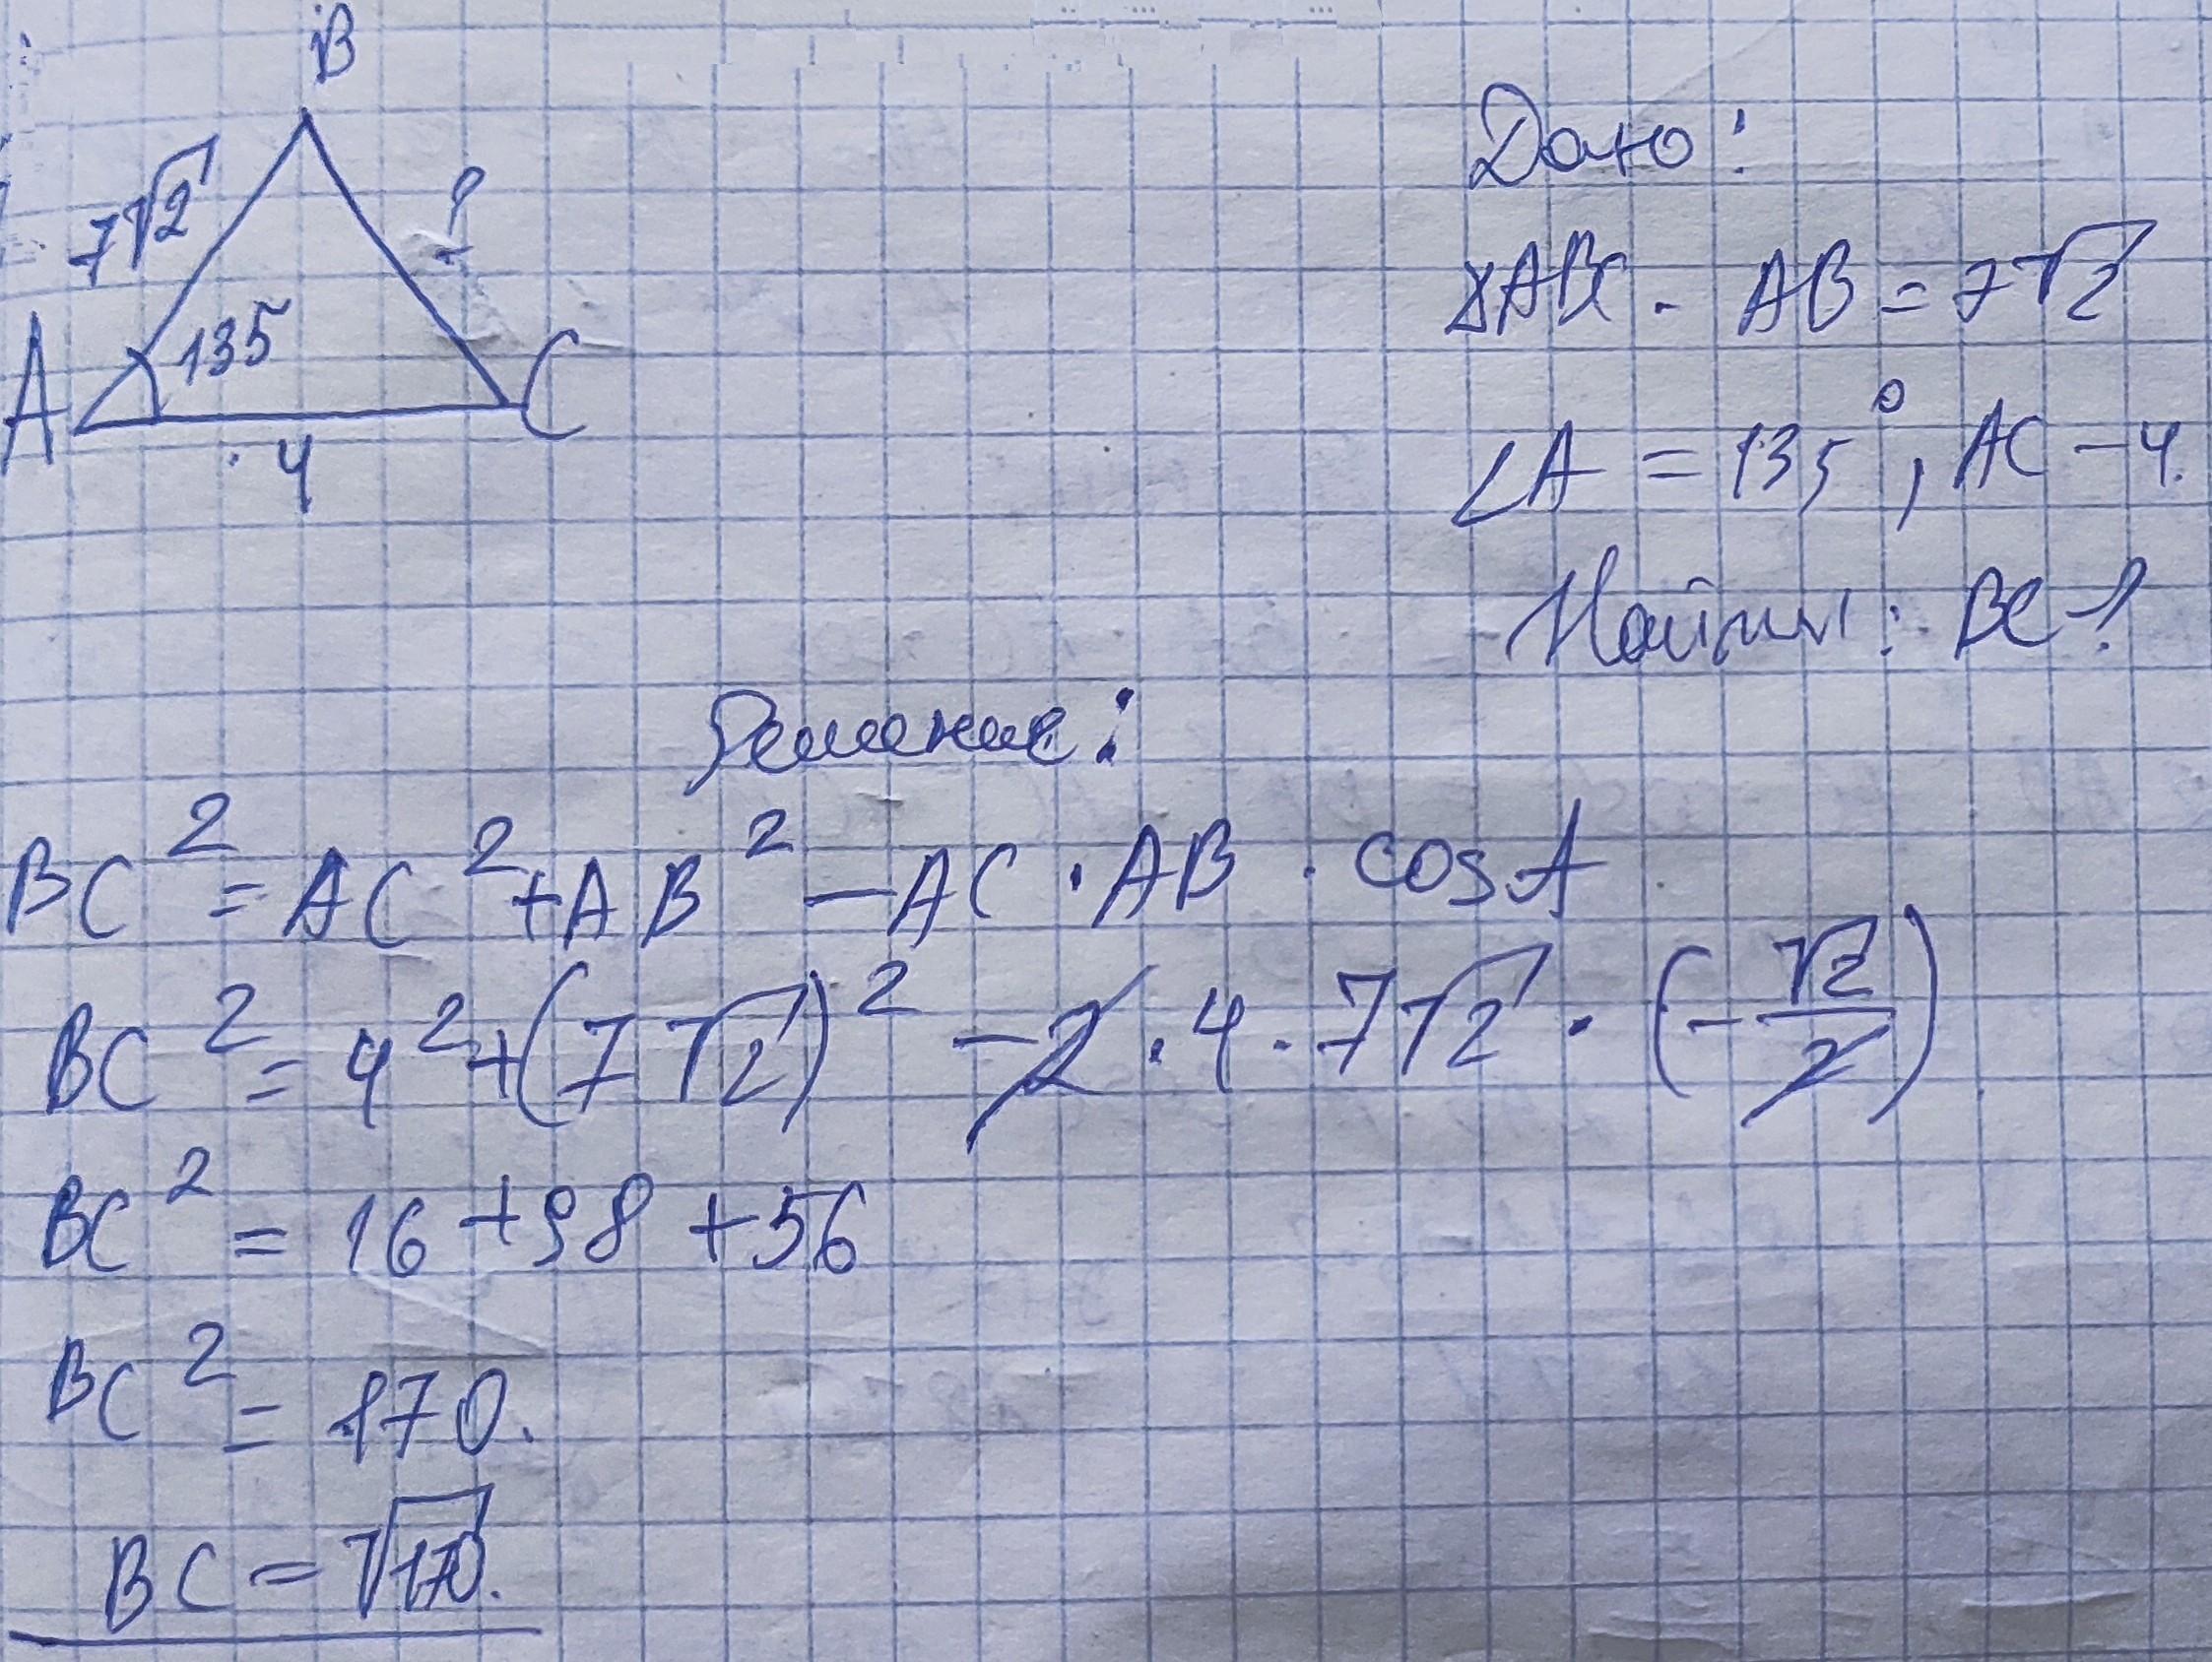 B
7√2
?
A
135
C
4
Дано:
△ABC - AB = 7√2
∠A = 135°, AC - 4.
Найти: BC - ?
Решение:
BC² = AC² + AB² - AC · AB · cos A
BC² = 4² + (7√2)² - 2 · 4 · 7√2 · (-√2/2)
BC² = 16 + 98 + 56
BC² = 170.
BC = √170.